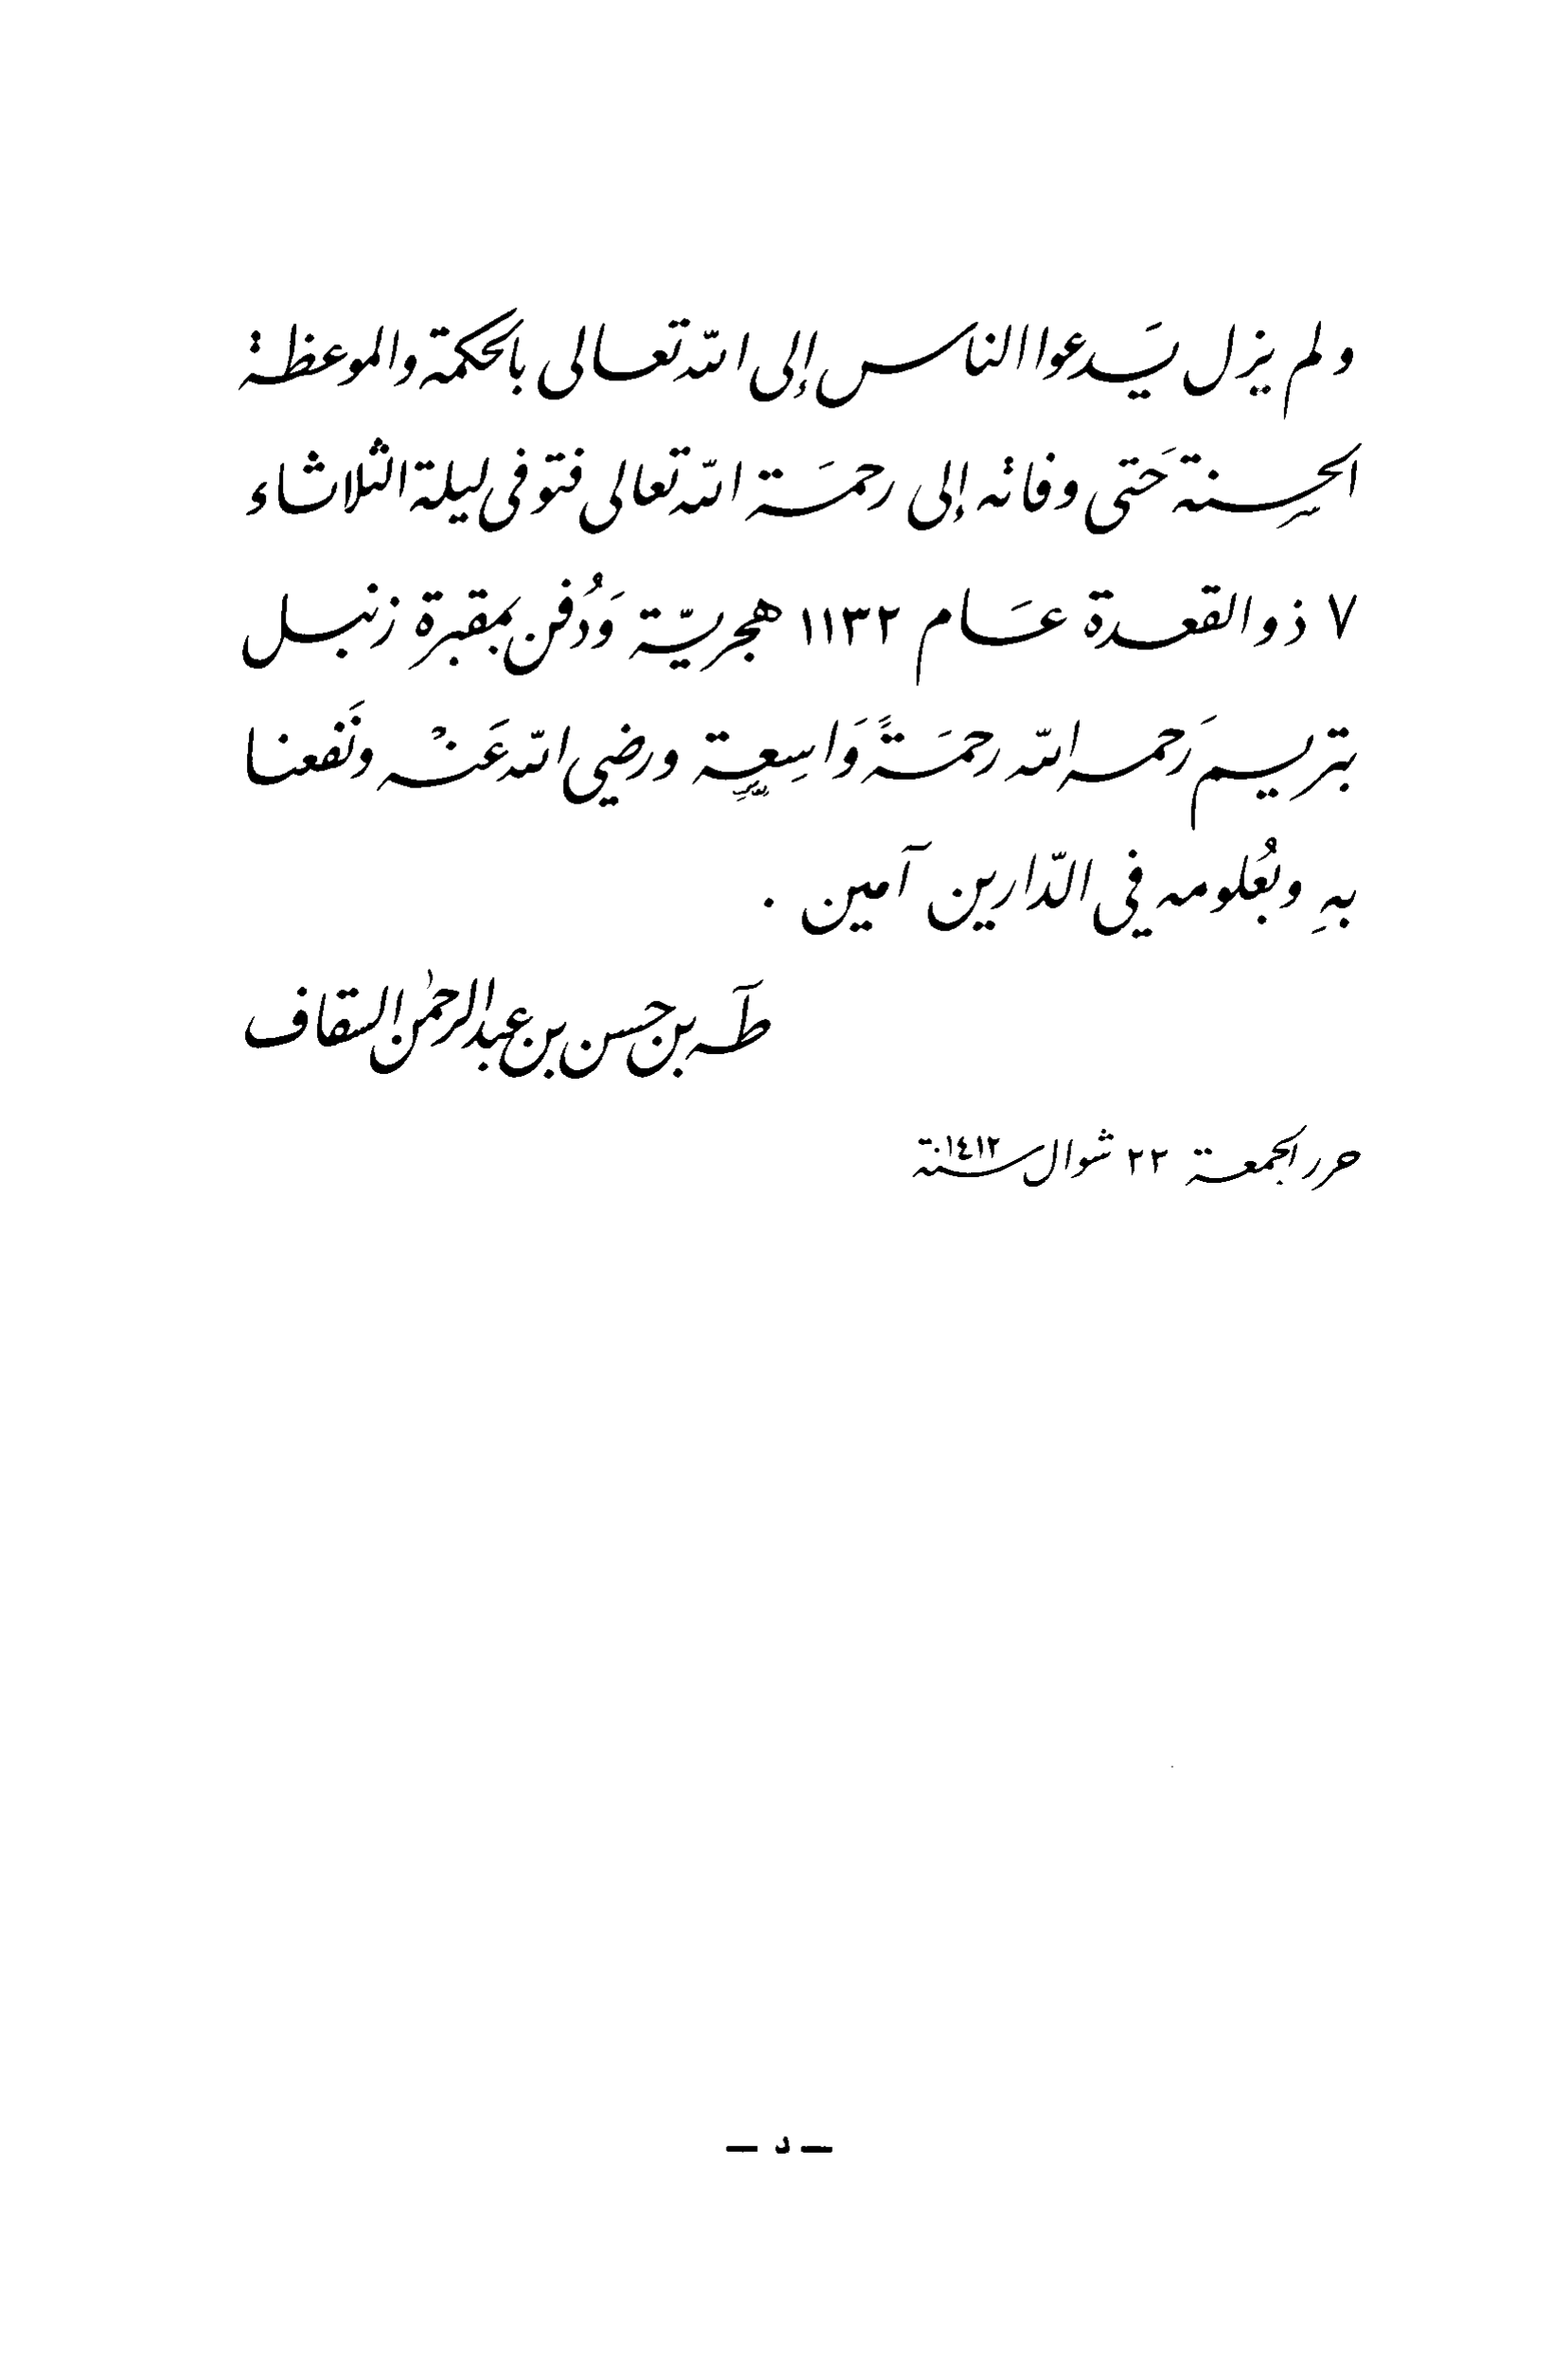 ولم يزل يَدعوا الناس إلى الله تعالى بالحكمة والموعظة
الحسنة حَتى وفاته إلى رحمَة الله تعالى فتوفى ليلة الثلاثاء
٧ ذو القعدة عَام ١١٣٢ هجريّة وَدُفن بمقبرة زنبل
بتريم رَحمه الله رحمَةً وَاسِعة ورضي الله عَنْه ونَفعنا
بهِ وبعُلومه في الدّارين آمين .
طٓه بن حسن بن عبد الرحمٰن السقاف
حرر الجمعة ٢٢ شوال سنة ١٤١٢
— د —